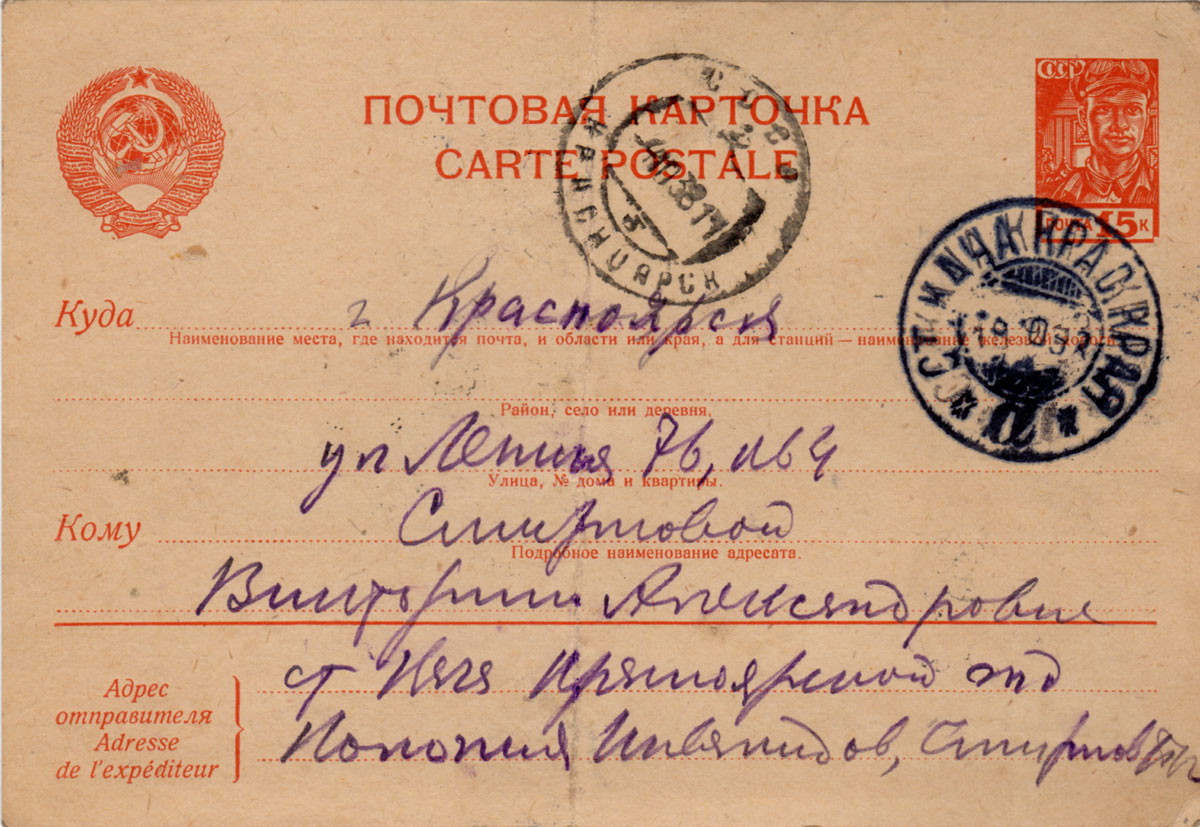 СССР
ПОЧТОВАЯ КАРТОЧКА
CARTE POSTALE
ПОЧТА 15 К
КРАСНОЯРСК
Куда г. Красноярск
Наименование места, где находится почта, и области или края, а для станций — наименование железной дороги
Район, село или деревня.
ул Ленина 76, кв 4
Улица, № дома и квартиры.
Кому Смирновой
Подробное наименование адресата.
Виктории Александровне
Адрес отправителя
Adresse de l'expéditeur
ст Красноярской жд
Колония Инвалидов, Смирнов